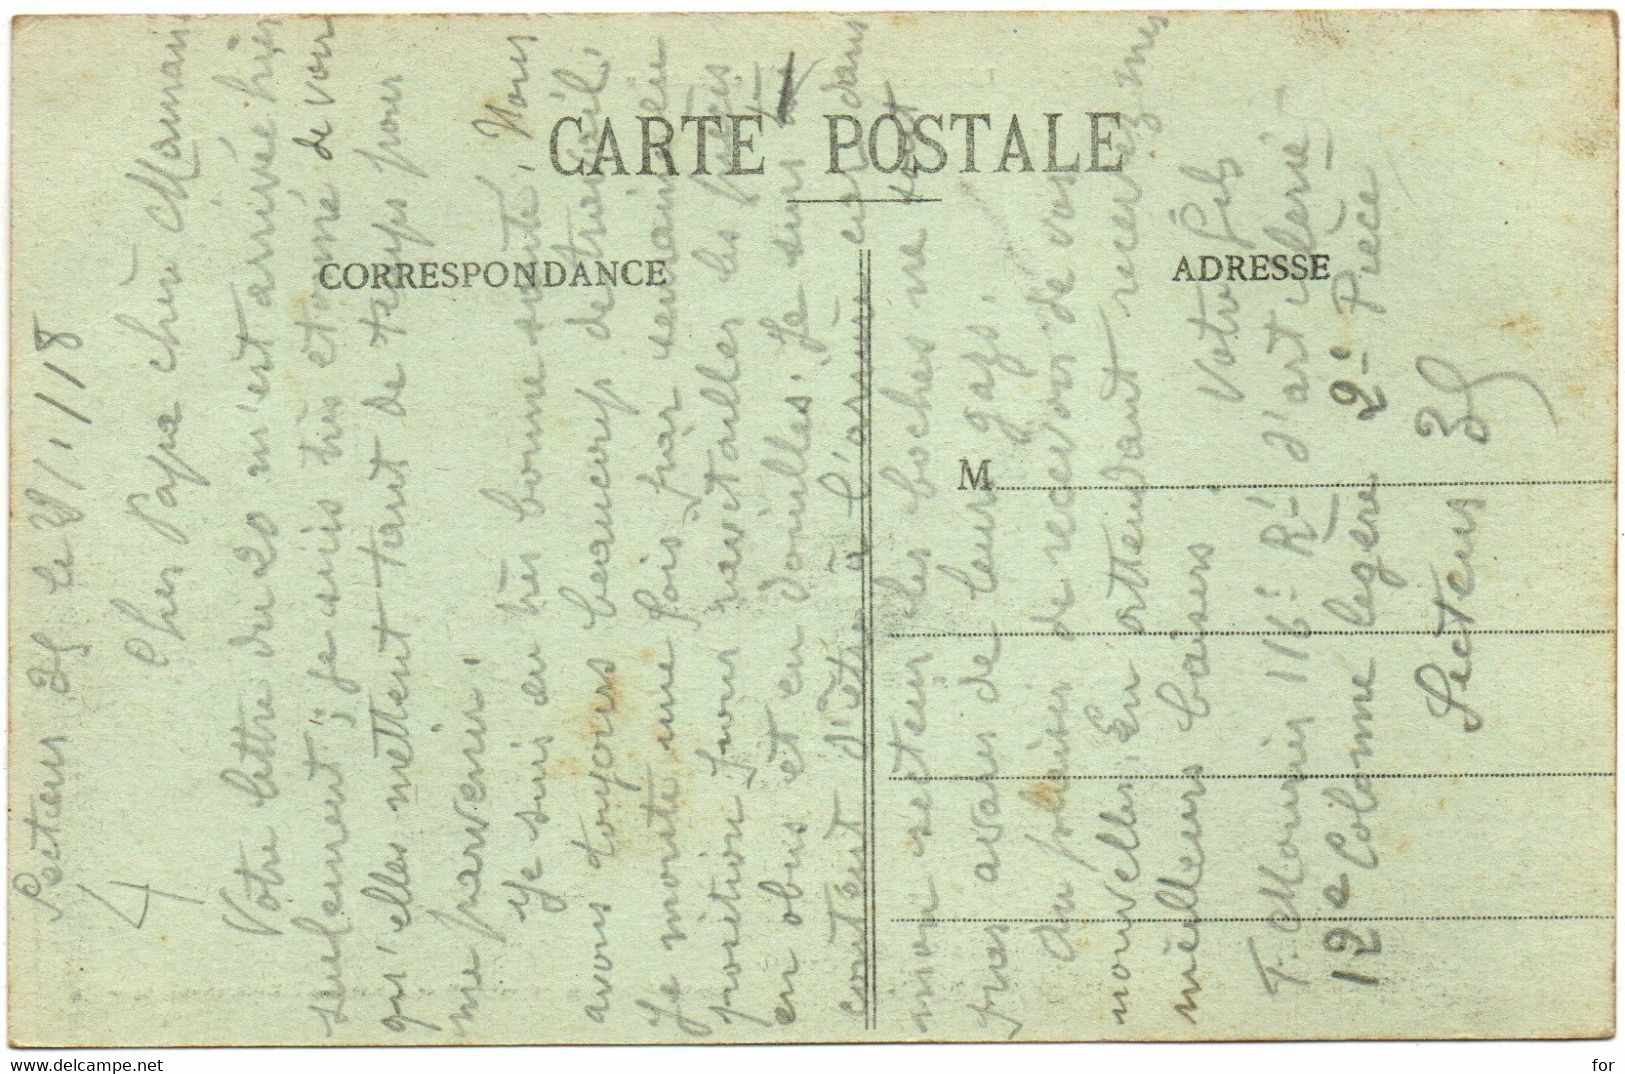 CARTE POSTALE
CORRESPONDANCE
ADRESSE
M
Secteur 35 le 29/1/18
Cher Papa chère Maman
Votre lettre du 20 m'est arrivée hier
seulement; je suis très étonné de voir
qu'elles mettent tant de temps pour
me parvenir.
Je suis en très bonne santé. Nous
avons toujours beaucoup de travail,
Je monte une fois par semaine en
position pour ravitailler les pièces
en obus et en douilles. Je suis
content d'être à l'arrière car dans
mon secteur les boches ne sont
pas avares de leurs gaz.
Au plaisir de recevoir de vos
nouvelles. En attendant recevez mes
meilleurs baisers. Votre fils
116e R-t d'artillerie
12e Colonne légère 2e Pièce
Secteur 35
www.delcampe.net
for